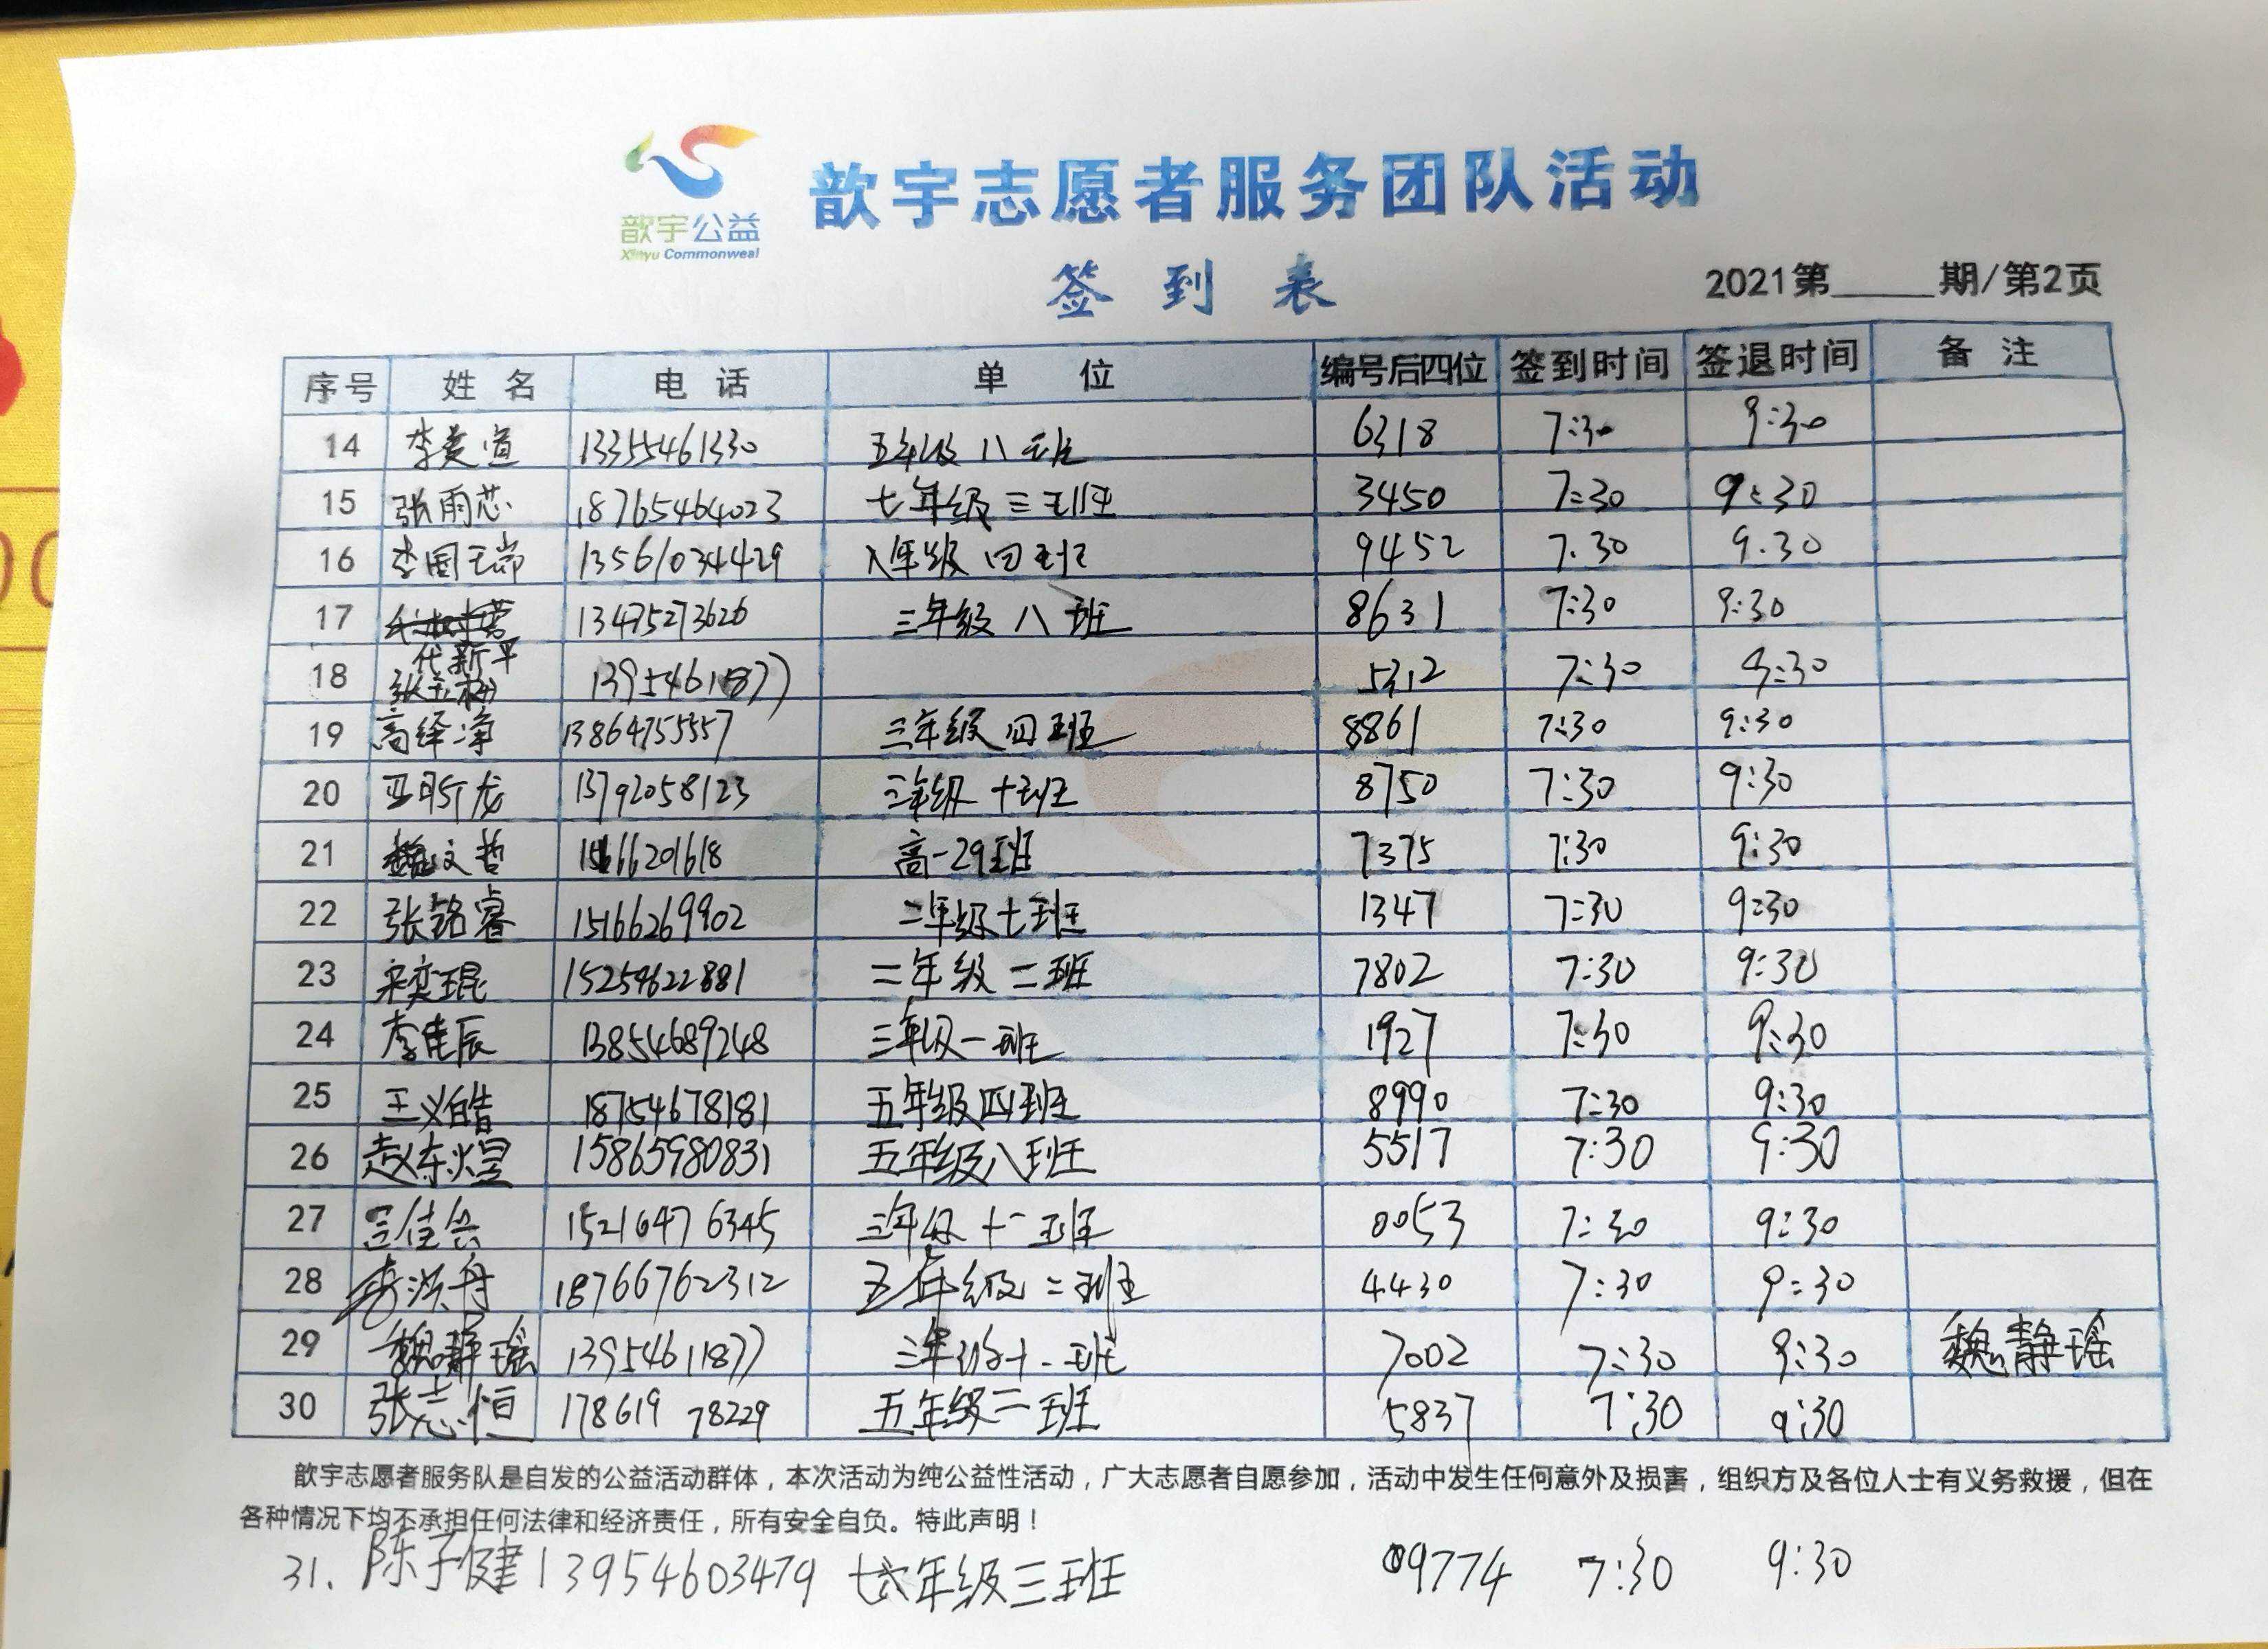 歆宇公益
Xinyu Commonweal
歆宇志愿者服务团队活动
签到表
2021第_____期/第2页
序号 姓名 电话 单位 编号后四位 签到时间 签退时间 备注
14 李奕萱 13355461330 五年级八班 6318 7:30 9:30
15 张雨芯 18765464023 七年级三班 3450 7:30 9:30
16 李国瑞 13561034429 八年级四班 9452 7.30 9.30
17 13475273626 三年级八班 8631 7:30 9:30
代新平
18 张玉梅 13954611877 5312 7:30 9:30
19 高绎净 13864755557 三年级四班 8861 7:30 9:30
20 13792058123 三年级十班 8750 7:30 9:30
21 魏文哲 15166201618 高一29班 7375 7:30 9:30
22 张铭睿 15166269902 二年级七班 1347 7:30 9:30
23 宋奕琨 15254622881 二年级二班 7802 7:30 9:30
24 李佳辰 13854689248 三年级一班 1927 7:30 9:30
25 王义皓 18754678181 五年级四班 8990 7:30 9:30
26 赵东煜 15865980831 五年级八班 5517 7:30 9:30
27 15216476345 三年级十一班 0053 7:30 9:30
28 李洪舟 18766762312 五年级二班 4430 7:30 9:30
29 魏静瑶 13954611877 三年级十一班 7002 7:30 9:30 魏静瑶
30 张志恒 17861978229 五年级二班 5837 7:30 9:30
歆宇志愿者服务队是自发的公益活动群体，本次活动为纯公益性活动，广大志愿者自愿参加，活动中发生任何意外及损害，组织方及各位人士有义务救援，但在
各种情况下均不承担任何法律和经济责任，所有安全自负。特此声明！
31. 陈子健 13954603479 六年级三班 9774 7:30 9:30